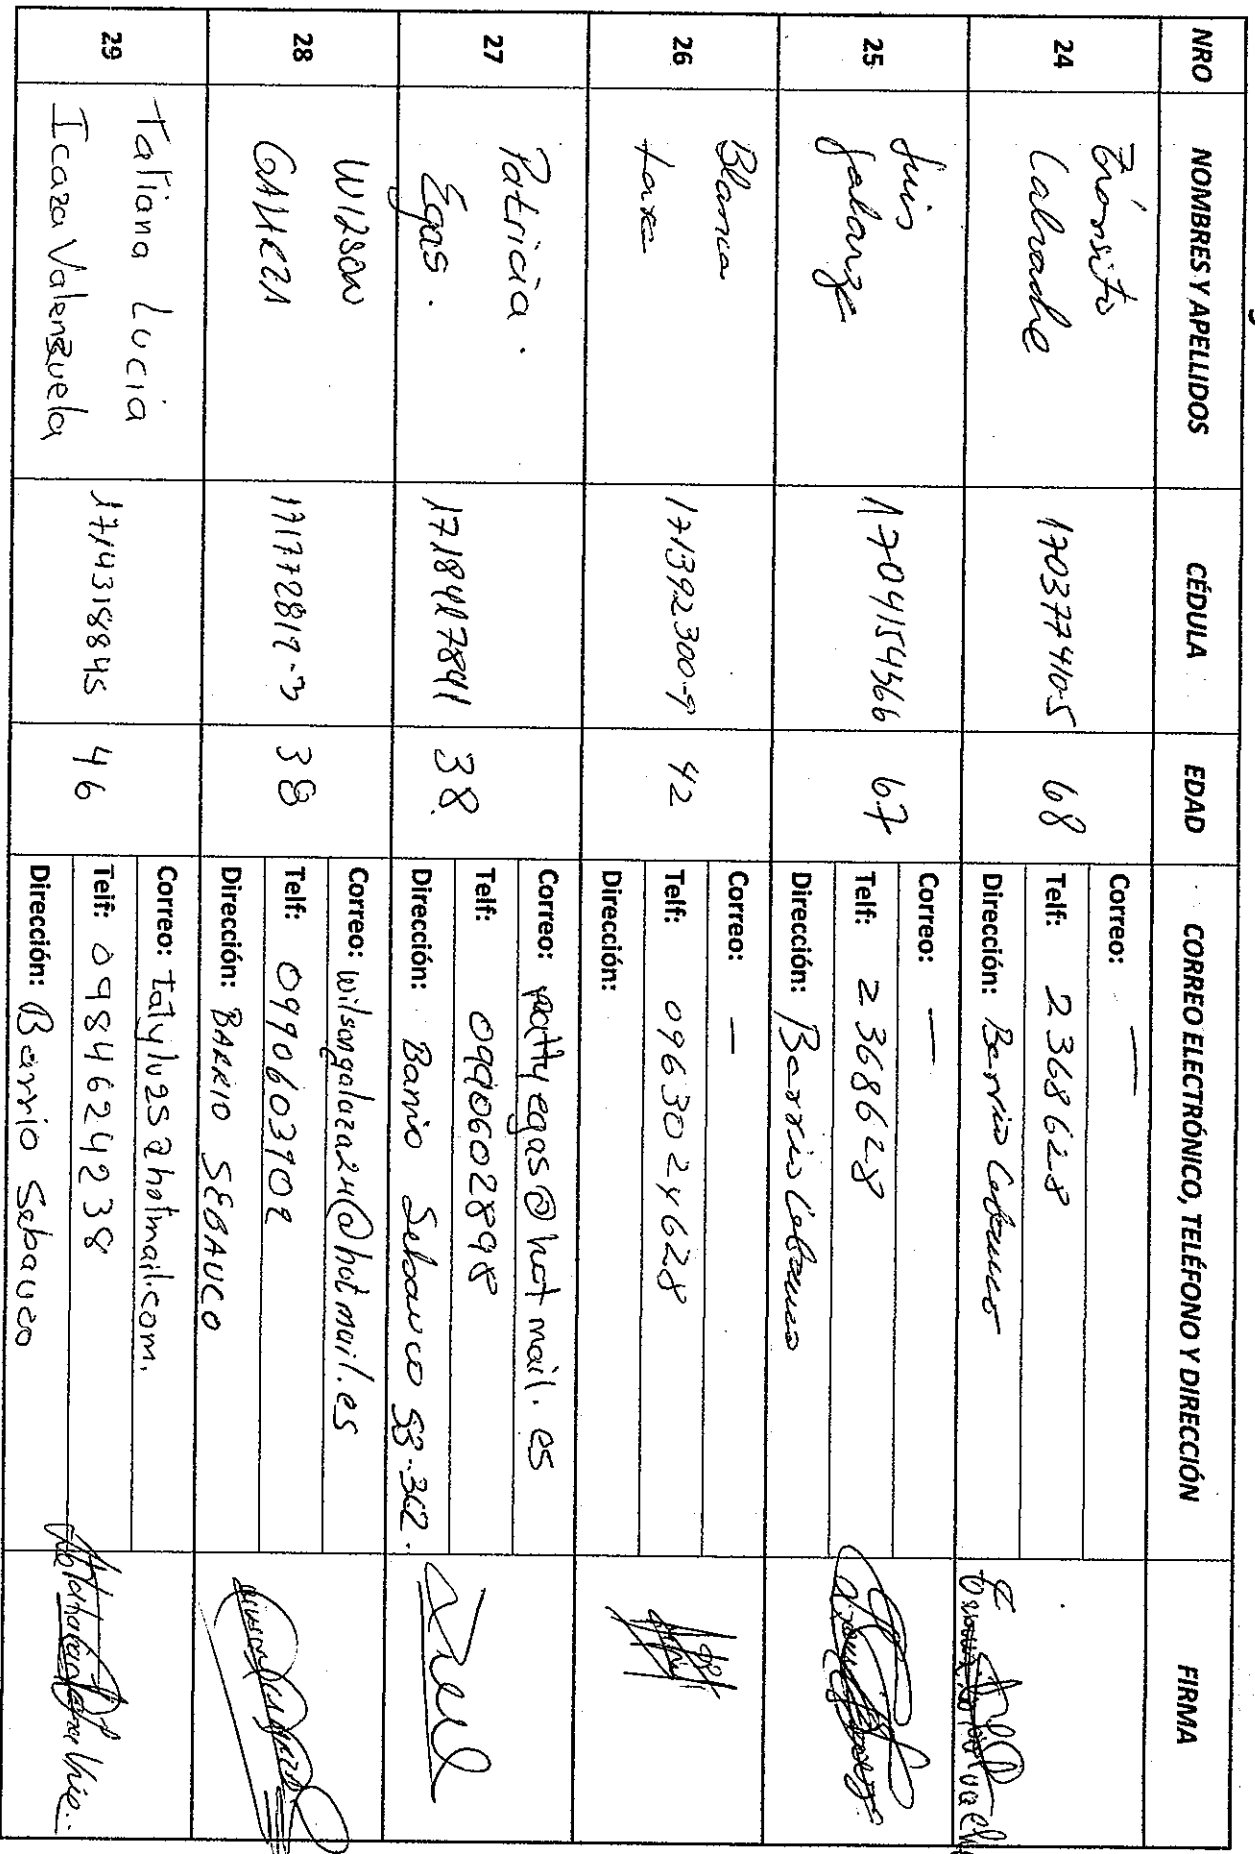 NRO NOMBRES Y APELLIDOS CÉDULA EDAD CORREO ELECTRÓNICO, TELÉFONO Y DIRECCIÓN FIRMA
24
Tránsito
Calvache
170377410-5
68
Correo: —
Telf: 2368628
Dirección: Barrio
25
Luis
Galarza
1704154366
67
Correo: —
Telf: 2368628
Dirección: Barrio
26
Blanca
171392300-9
42
Correo: —
Telf: 0963024628
Dirección:
27
Patricia.
Egas.
38.
Correo: pattyegas@hotmail.es
Telf: 0990602898
Dirección: Barrio Sebauco S3-362.
28
WILSON
GALARZA
38
Correo: wilsongalaza24@hotmail.es
Telf: 0990603902
Dirección: BARRIO SEBAUCO
29
Tatiana Lucia
Icaza Valenzuela
1714318845
46
Correo: tatylu25@hotmail.com.
Telf: 0984624238
Dirección: Barrio Sebauco